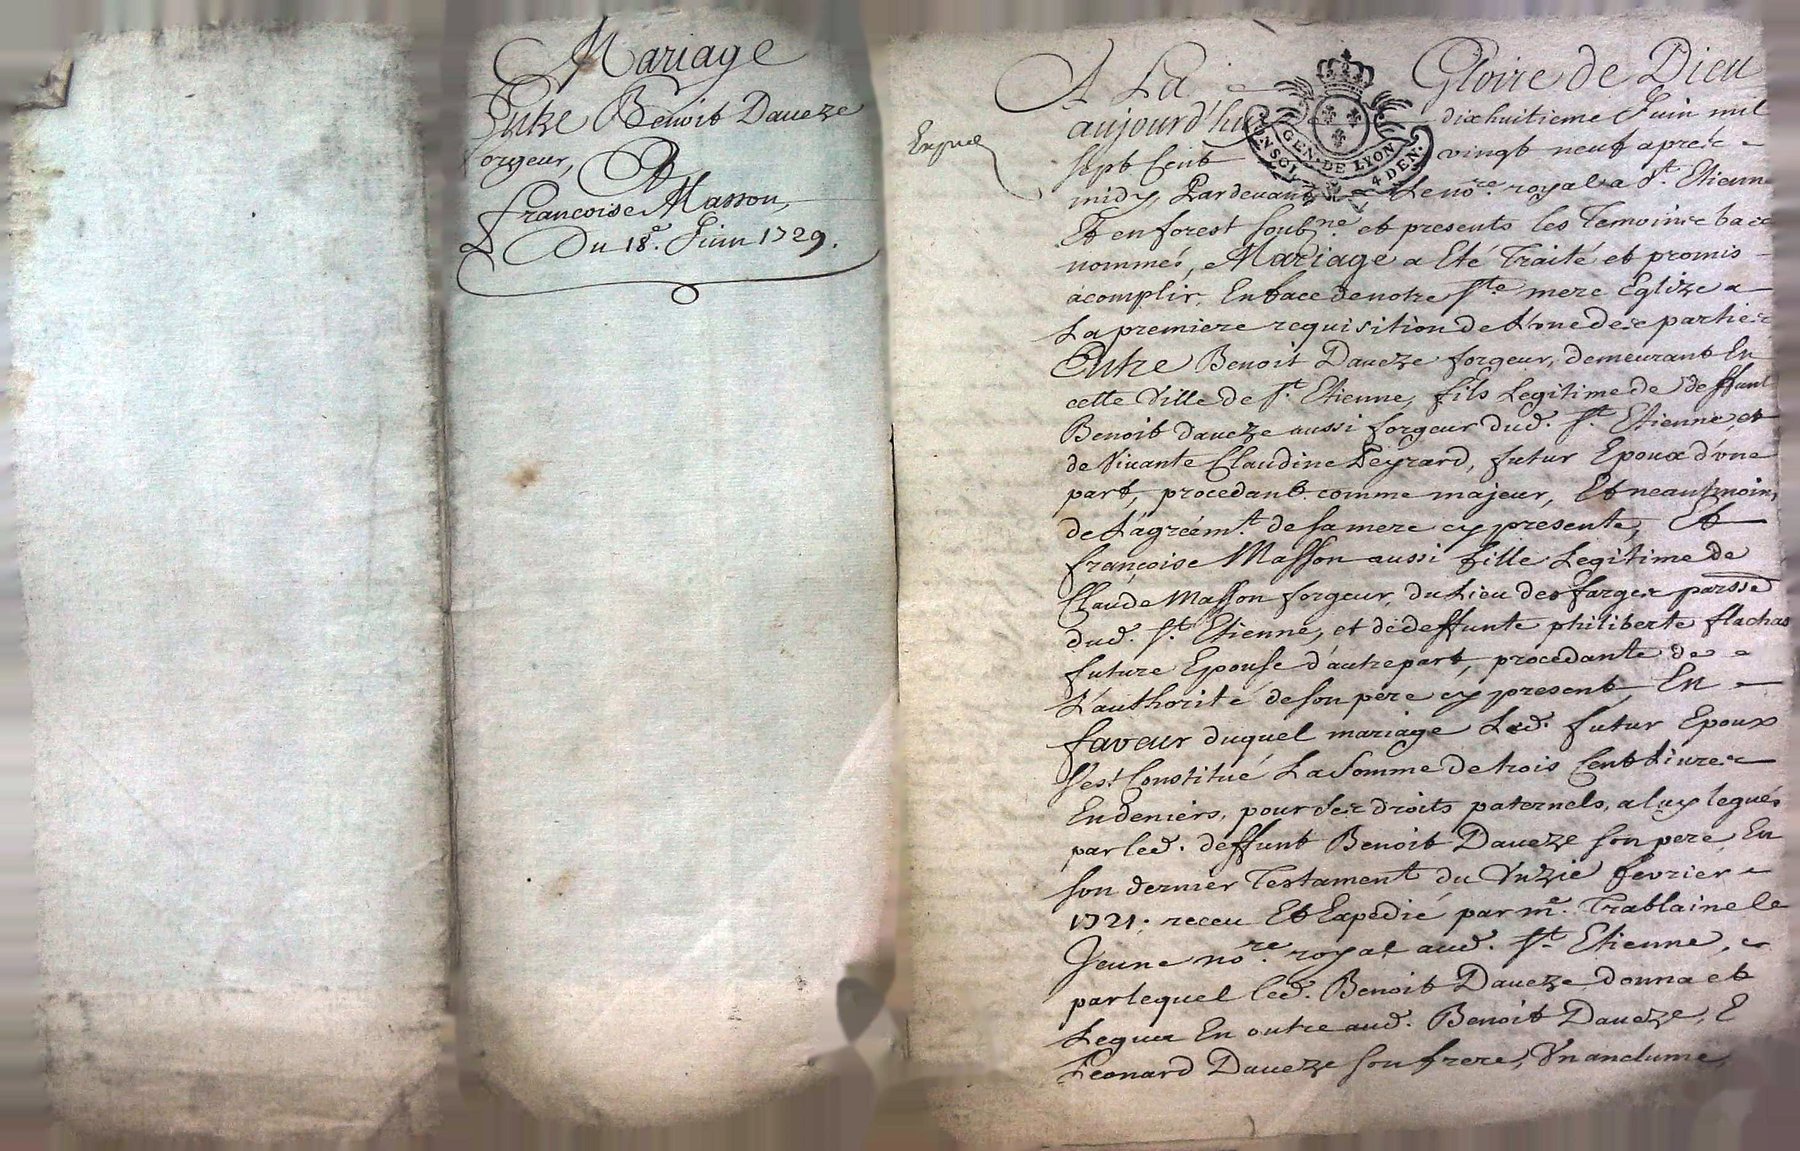 Mariage
Entre Benoit Daveze
forgeur,
Et
francoise Masson,
Du 18e. Juin 1729.
A La Gloire de Dieu
aujourd'huy dixhuitieme Juin mil
sept Cent vingt neuf aprés
midy, Pardevant Le nore. royal a St. Etienne
Et en forest soubne. et presents les Temoins bas
nommés, Mariage a Eté Traité et promis
acomplir En face de notre Ste mere Eglize a
La premiere requisition de L'une des parties
Entre Benoit Daveze forgeur, demeurant En
cette Ville de St. Etienne, fils Legitime de deffunt
Benoit daveze aussi forgeur dud. St. Etienne, et
de Vivante Claudine Peyrard, futur Epoux d'une
part, procedant comme majeur, Et neantmoins
de L'agréemt. de sa mere cy presente, Et
françoise Masson aussi fille Legitime de
Claude Masson forgeur, du Lieu des farges parsse
dud. St. Etienne, et de deffunte philiberte flachas
future Epouse d'autre part, procedante de
L'authorité de son pere cy present, En
faveur duquel mariage Led. futur Epoux
s'est Constitué La Somme de trois Cent Livres
En deniers, pour Ses droits paternels, a luy legués
par led. deffunt Benoit Daveze son pere, En
son dernier Testament du Unzie fevrier
1721: receu Et Expedié par me. Trablaine le
Jeune nore. royal aud. St. Etienne,
par lequel led. Benoit Daveze donna et
Legua En outre aud. Benoit Daveze, E
Leonard Daveze son frere, Un anclume,
GEN. DE LYON
4 DEN.